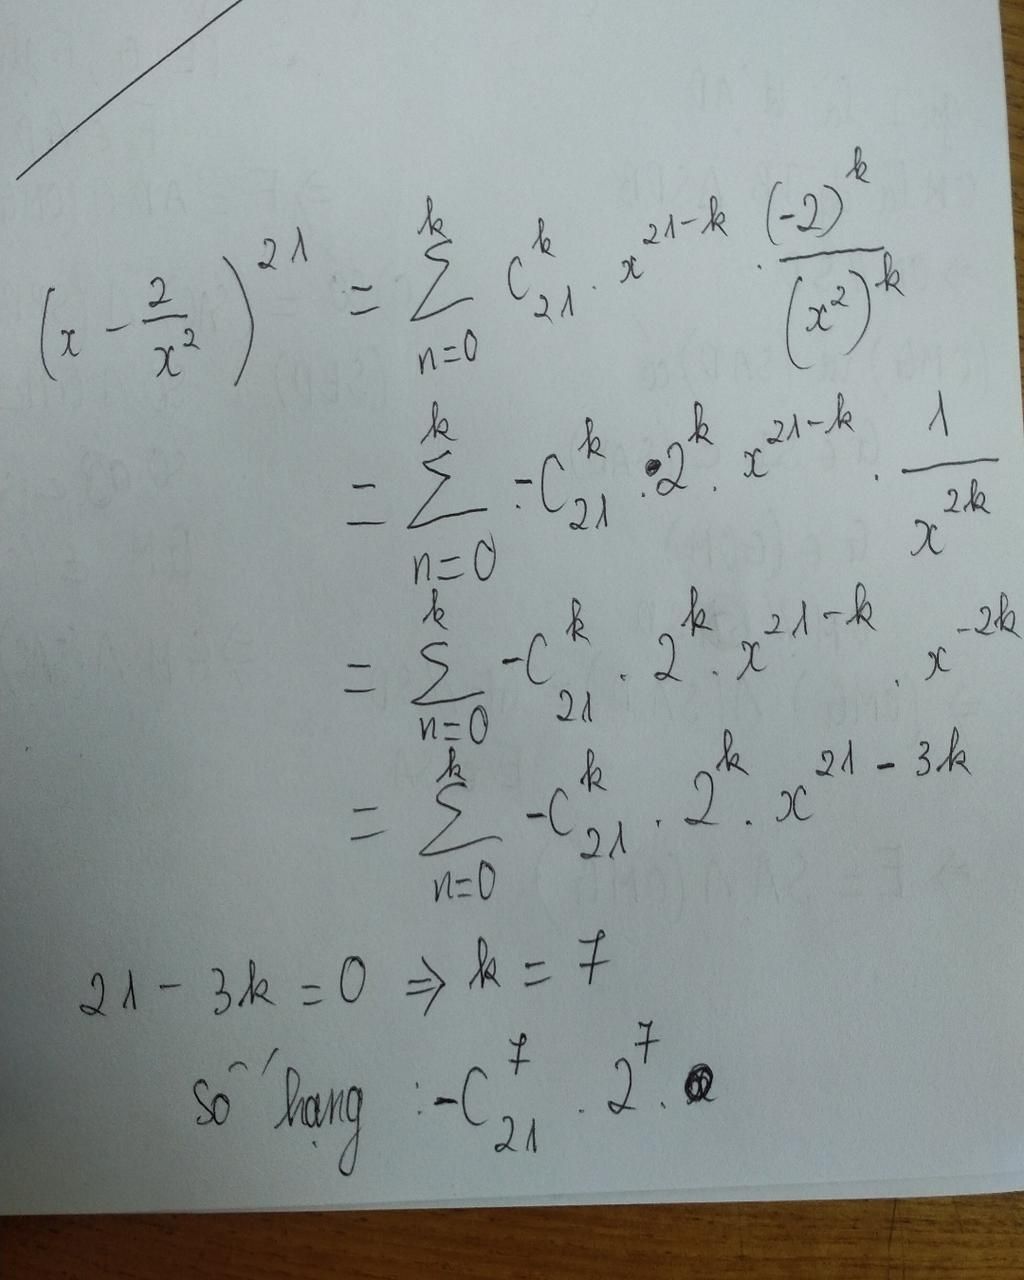 (x - 2/x²)²¹ = ∑_{n=0}^{k} C₂₁ᵏ . x²¹⁻ᵏ . (-2)ᵏ/(x²)ᵏ
= ∑_{n=0}^{k} -C₂₁ᵏ . 2ᵏ . x²¹⁻ᵏ . 1/x²ᵏ
= ∑_{n=0}^{k} -C₂₁ᵏ . 2ᵏ . x²¹⁻ᵏ . x⁻²ᵏ
= ∑_{n=0}^{k} -C₂₁ᵏ . 2ᵏ . x²¹⁻³ᵏ
21 - 3k = 0 ⇒ k = 7
số hạng : -C₂₁⁷ . 2⁷ .